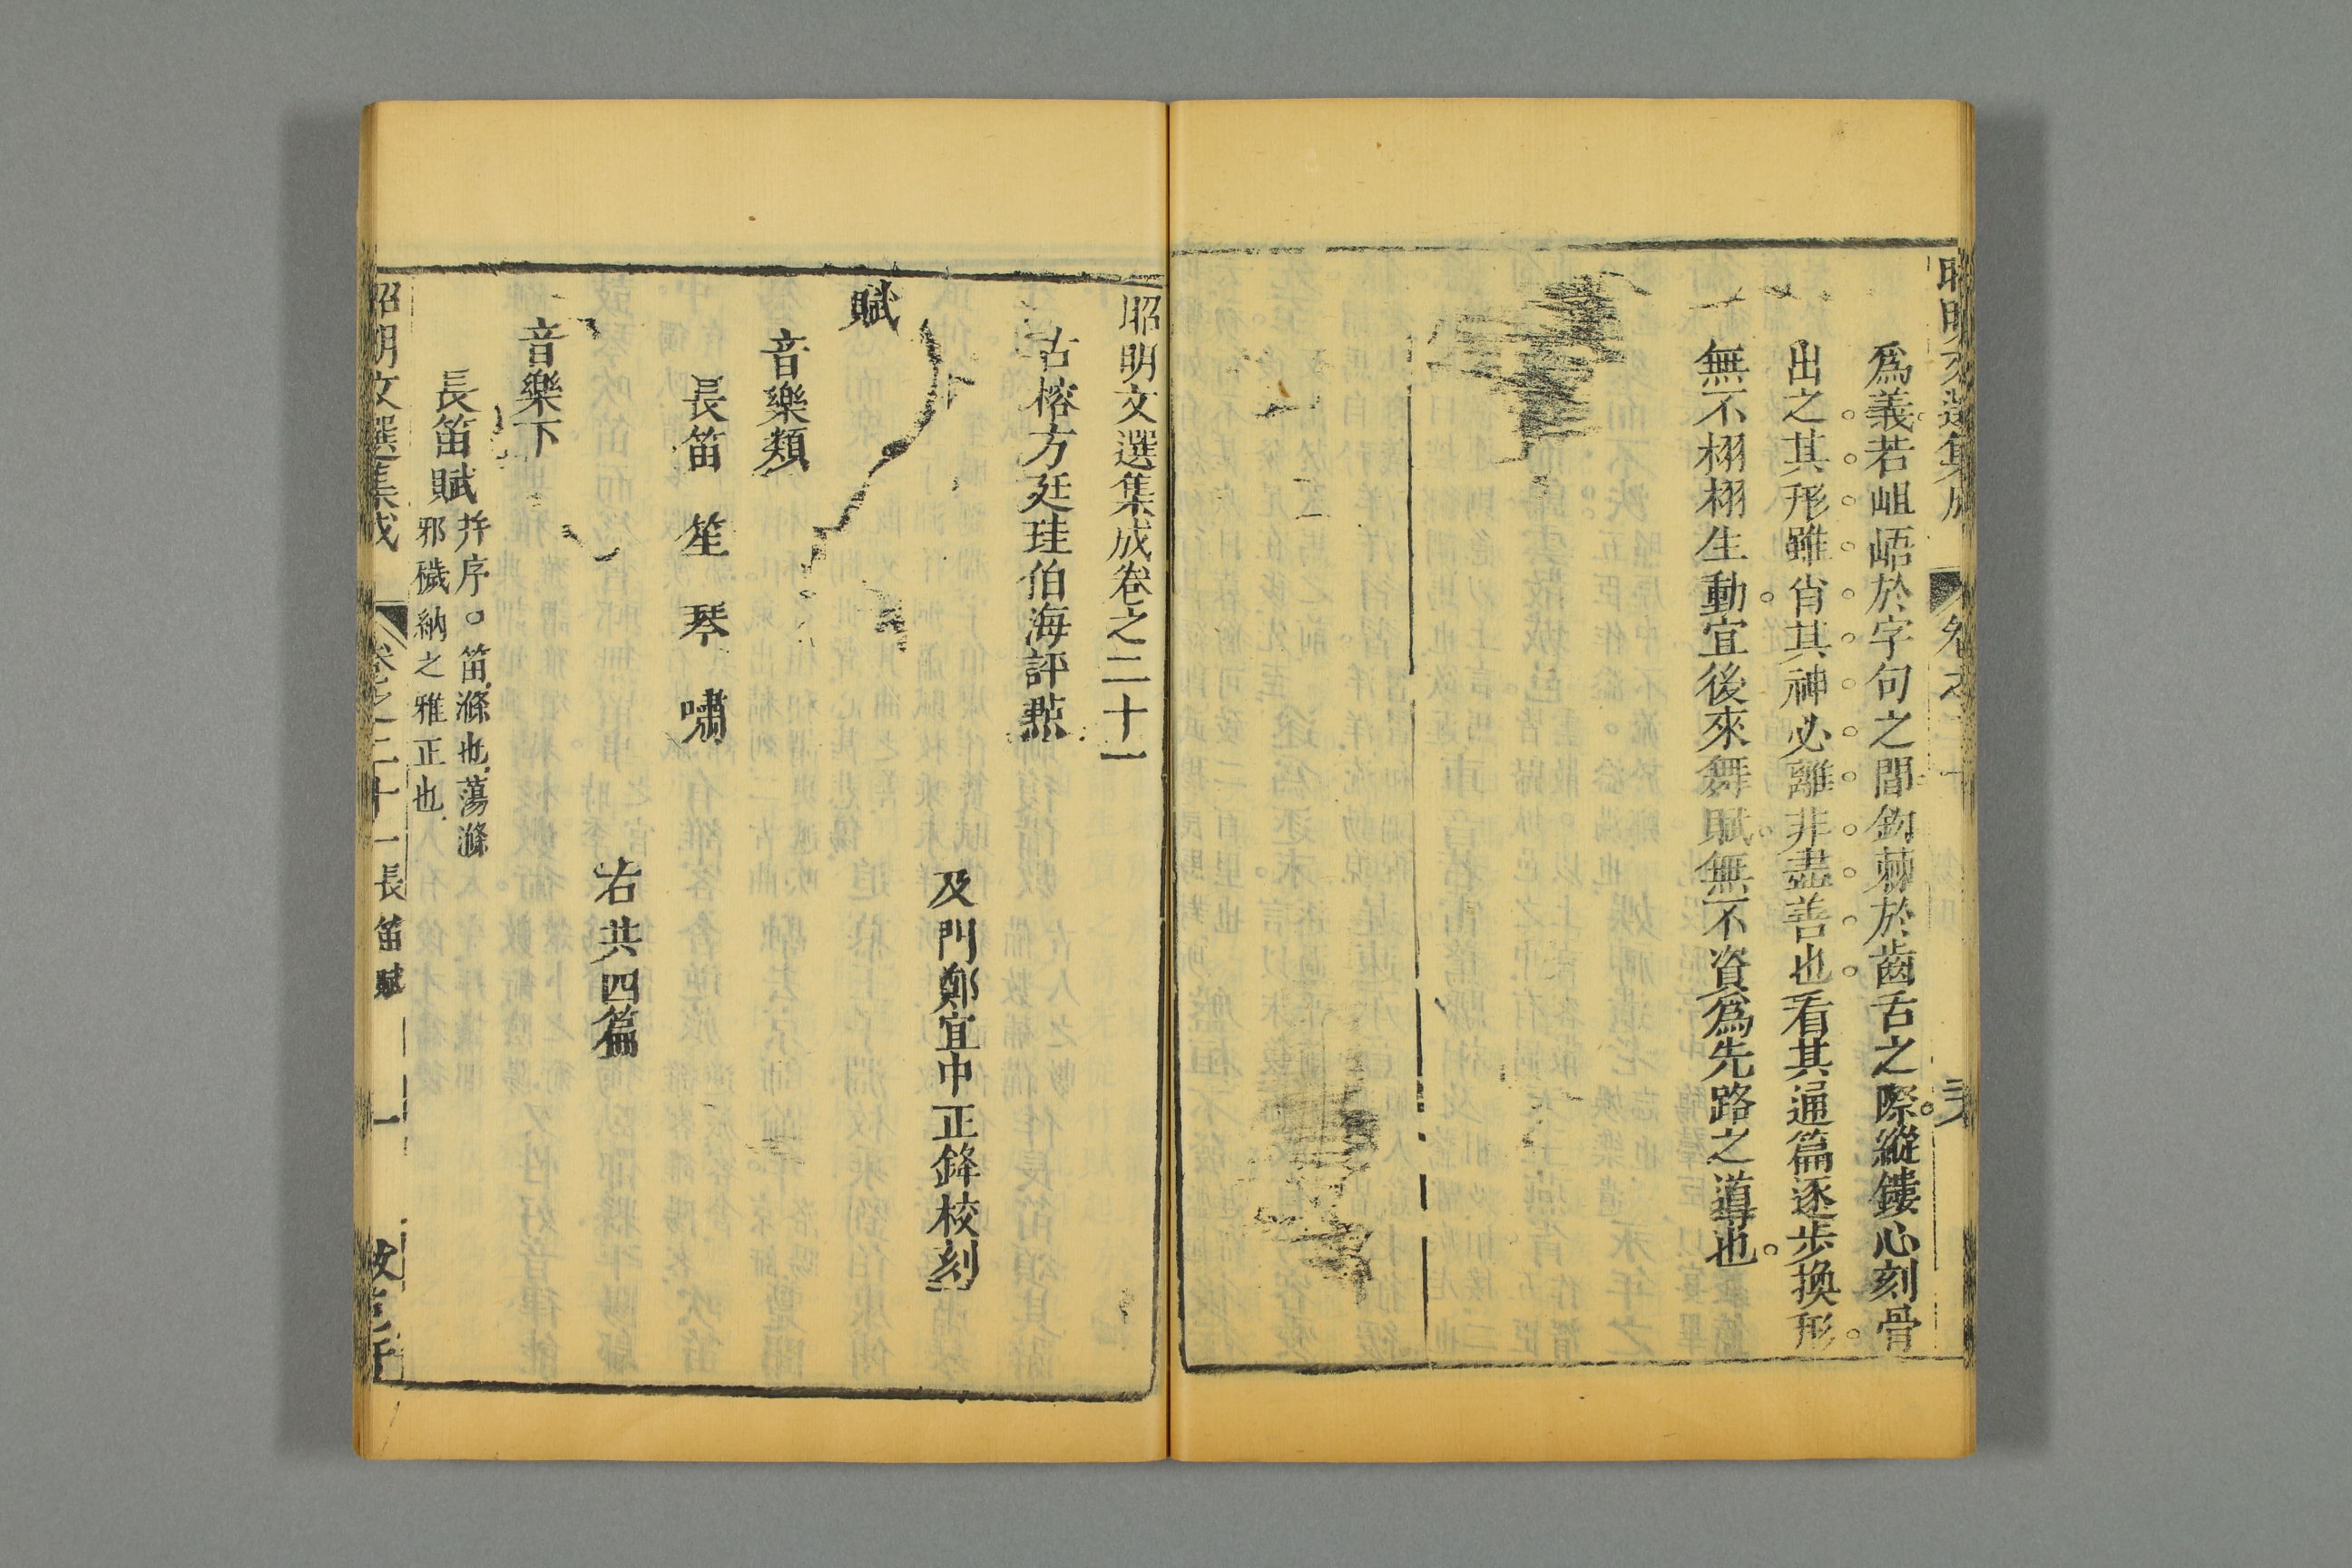 昭明文選集成 卷之二十
爲義若岨峿於字句之間鉤棘於齒舌之際縱鏤心刻骨
出之其形雖肖其神必離非盡善也看其通篇逐步換形
無不栩栩生動宜後來舞賦無不資爲先路之導也
昭明文選集成卷之二十一
古榕方廷珪伯海評點
及門鄭宜中正鋒校刻
賦
音樂類
長笛 笙 琴 嘯
右共四篇
音樂下
長笛賦
并序。笛滌也蕩滌
邪穢納之雅正也
昭明文選集成 卷之二十一 長笛賦 一